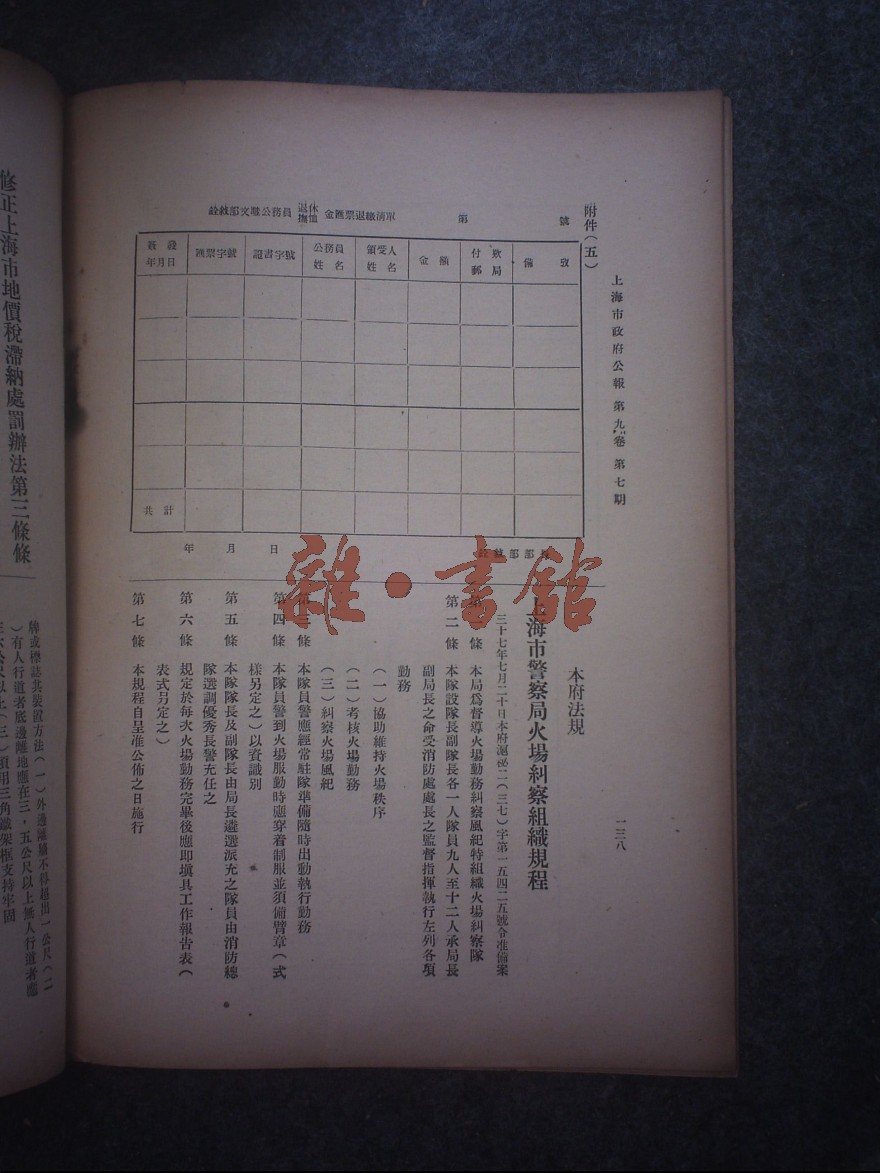 上海市政府公報 第九卷 第七期
一三八
附件(五)
銓敘部文職公務員退休撫卹金匯票退繳清單 第 號
簽發年月日
匯票字號
證書字號
公務員姓名
領受人姓名
金額
付欵郵局
備攷
共計
年 月 日
銓敘部部長
本府法規
上海市警察局火場糾察組織規程
三十七年七月二十日本府滬祕二(三七)字第一五四二五號令准備案
第一條 本局爲督導火場勤務糾察風紀特組織火場糾察隊
第二條 本隊設隊長副隊長各一人隊員九人至十二人承局長
副局長之命受消防處處長之監督指揮執行左列各項
勤務
(一)協助維持火場秩序
(二)考核火場勤務
(三)糾察火場風紀
第三條 本隊員警應經常駐隊準備隨時出動執行勤務
第四條 本隊員警到火場服勤時應穿着制服並須備臂章(式
樣另定之)以資識別
第五條 本隊隊長及副隊長由局長遴選派充之隊員由消防總
隊選調優秀長警充任之
第六條 規定於每次火場勤務完畢後應即塡具工作報告表(
表式另定之)
第七條 本規程自呈准公佈之日施行
雜·書館
修正上海市地價稅滯納處罰辦法第三條條
牌或標誌其裝置方法(一)外邊離牆不得超出一公尺(二
)有人行道者底邊離地應在三·五公尺以上無人行道者應
在六公尺以上(三)須用三角鐵架框支持牢固